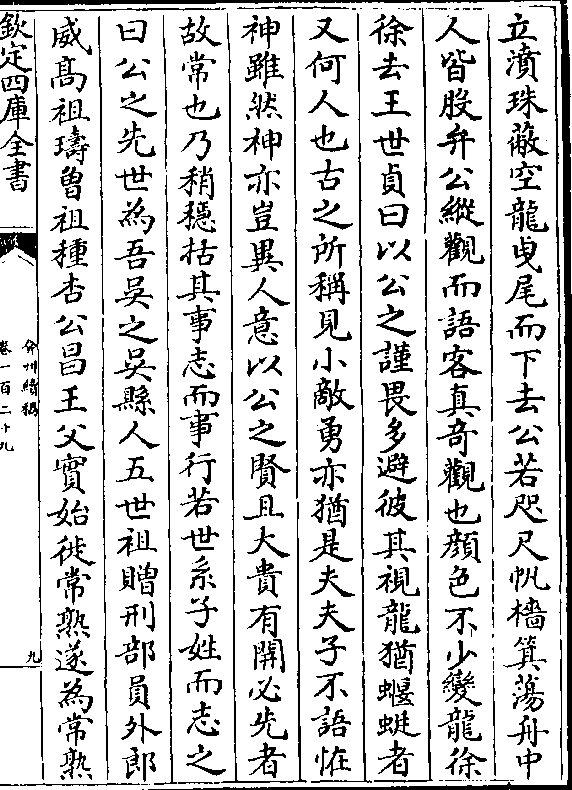 立濆珠蔽空龍曵尾而下去公若咫尺帆檣箕蕩舟中
人皆股弁公縱觀而語客真奇觀也顔色不少變龍徐
徐去王世貞曰以公之謹畏多避彼其視龍猶蝘蜓者
又何人也古之所稱見小敵勇亦猶是夫夫子不語恠
神雖然神亦豈異人意以公之賢且大貴有開必先者
故常也乃稍穏括其事志而事行若世系子姓而志之
曰公之先世為吾吳之吳縣人五世祖贈刑部員外郎
威髙祖璹曾祖種杏公昌王父實始徙常熟遂為常熟
欽定四庫全書
弇州續稿
卷一百二十九
九